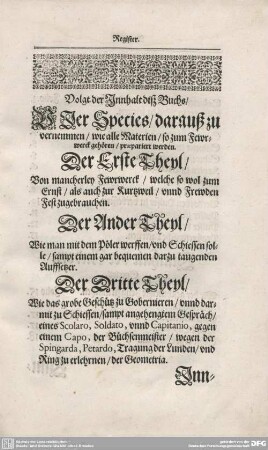 Register.
Volgt der Innhalt diß Buchs/
VIer Species/ darauß zu
vernemmen/ wie alle Materien/ so zum Fewr-
werck gehören/ præpariert werden.
Der Erste Theyl/
Von mancherley Fewrwerck/ welche so wol zum
Ernst/ als auch zur Kurtzweil/ vnnd Frewden
Fest zugebrauchen.
Der Ander Theyl/
Wie man mit dem Pöler werffen/ vnd Schiessen sol-
le/ sampt einem gar bequemen darzu taugenden
Auffsetzer.
Der Dritte Theyl/
Wie das grobe Geschütz zu Gobernieren/ vnnd dar-
mit zu Schiessen/ sampt angehengtem Gespräch/
eines Scolaro, Soldato, vnnd Capitanio, gegen
einem Capo, der Büchsenmeister/ wegen der
Spingarda, Petardo, Tragung der Lunden/ vnd
Ring zu erlehrnen/ der Geometria.
Inn-